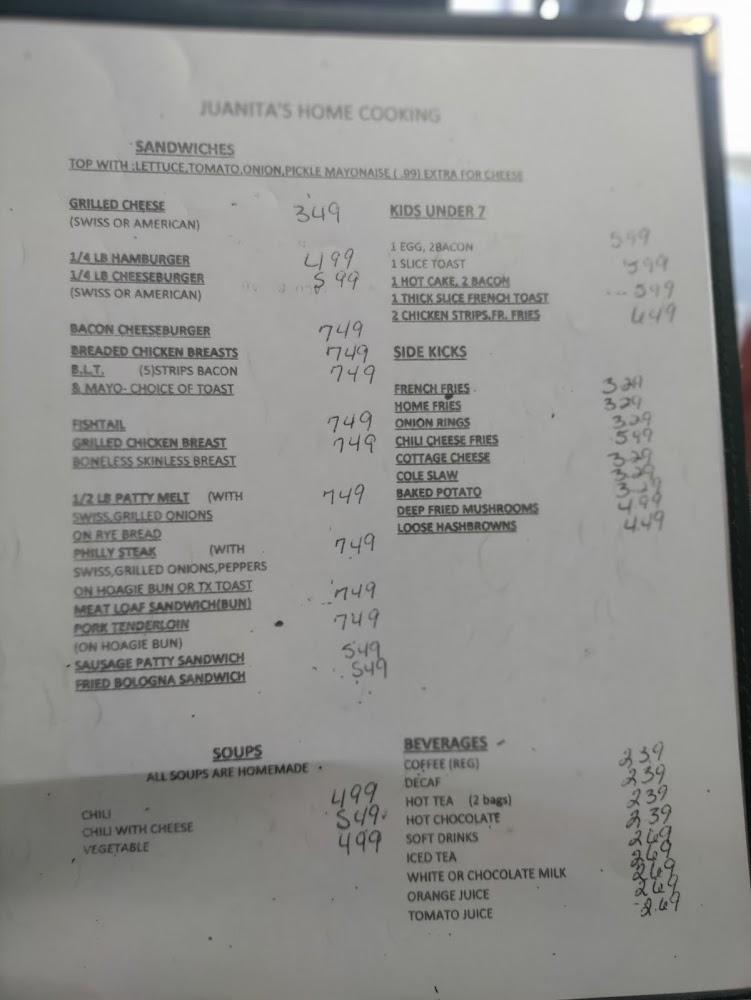 JUANITA'S HOME COOKING
SANDWICHES
TOP WITH :LETTUCE,TOMATO,ONION,PICKLE MAYONAISE ( .99) EXTRA FOR CHEESE
GRILLED CHEESE 349
(SWISS OR AMERICAN)
1/4 LB HAMBURGER 499
1/4 LB CHEESEBURGER 599
(SWISS OR AMERICAN)
BACON CHEESEBURGER 749
BREADED CHICKEN BREASTS 749
B.L.T. (5)STRIPS BACON 749
& MAYO- CHOICE OF TOAST
FISHTAIL 749
GRILLED CHICKEN BREAST 749
BONELESS SKINLESS BREAST
1/2 LB PATTY MELT (WITH 749
SWISS,GRILLED ONIONS
ON RYE BREAD
PHILLY STEAK (WITH 749
SWISS,GRILLED ONIONS,PEPPERS
ON HOAGIE BUN OR TX TOAST
MEAT LOAF SANDWICH(BUN) 749
PORK TENDERLOIN 749
(ON HOAGIE BUN)
SAUSAGE PATTY SANDWICH 549
FRIED BOLOGNA SANDWICH 549
KIDS UNDER 7
1 EGG, 2BACON 599
1 SLICE TOAST 599
1 HOT CAKE, 2 BACON 599
1 THICK SLICE FRENCH TOAST
2 CHICKEN STRIPS,FR. FRIES 649
SIDE KICKS
FRENCH FRIES 329
HOME FRIES 329
ONION RINGS 329
CHILI CHEESE FRIES 599
COTTAGE CHEESE 329
COLE SLAW 329
BAKED POTATO 329
DEEP FRIED MUSHROOMS 499
LOOSE HASHBROWNS 449
SOUPS
ALL SOUPS ARE HOMEMADE
CHILI 499
CHILI WITH CHEESE 549
VEGETABLE 499
BEVERAGES
COFFEE (REG) 239
DECAF 239
HOT TEA (2 bags) 239
HOT CHOCOLATE 239
SOFT DRINKS 269
ICED TEA 269
WHITE OR CHOCOLATE MILK 269
ORANGE JUICE 269
TOMATO JUICE 2.69